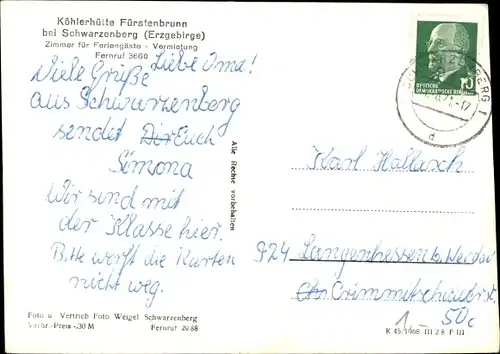 Köhlerhütte Fürstenbrunn
bei Schwarzenberg (Erzgebirge)
Zimmer für Feriengäste · Vermietung
Fernruf 3660
Liebe Oma!
Viele Grüße
aus Schwarzenberg
sendet Dir Euch
Simona
Wir sind mit
der Klasse hier.
Bitte werft die Karten
nicht weg.
Foto u Vertrieb Foto Weigel Schwarzenberg
Verbr.-Preis -.30 M Fernruf 2088
Alle Rechte vorbehalten
10
DEUTSCHE
DEMOKRATISCHE
Karl Hallasch
924 Langenhessen b. Werdau
Crimmitschauer st.
50c
1.-
K 45/1968 III 2 8 F III